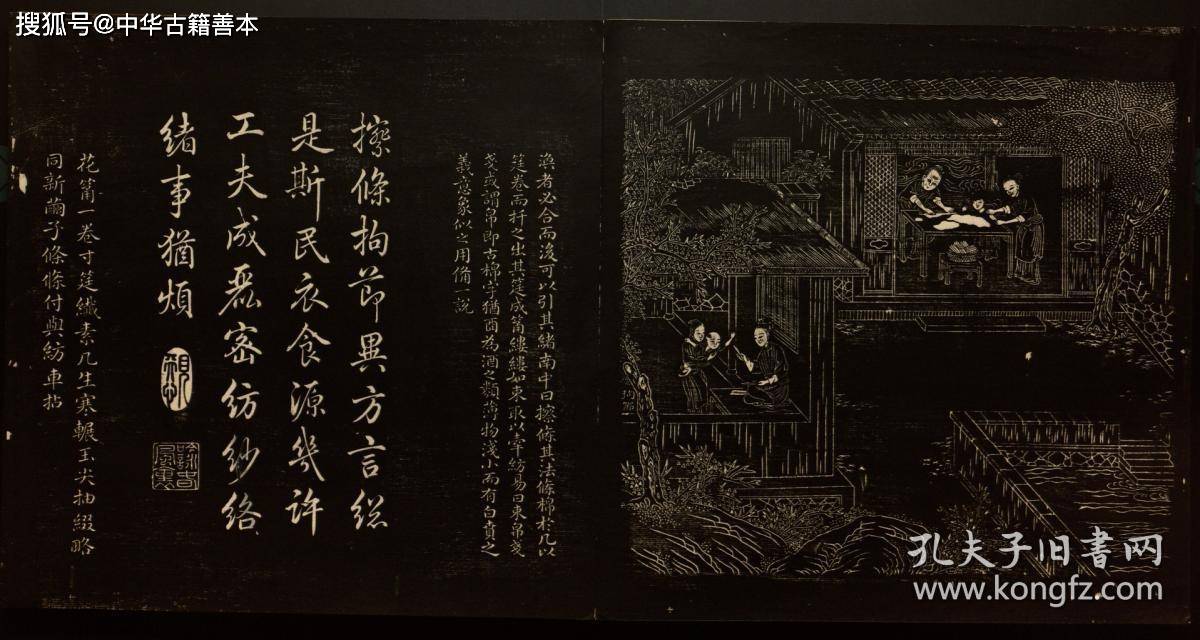 搜狐号@中华古籍善本
渙者必合而後可以引其緒南中曰擦條其法條棉於几以
筳卷而扞之出其筳成筩縷縷如束取以牽紡易曰束帛戔
戔或謂帛即古棉字猶酉為酒之類薄物淺小而有白賁之
義意象似之用備一說
擦條拘節異方言総
是斯民衣食源幾許
工夫成麗密紡紗絡
緒事猶煩
花筩一卷寸筳纖素几生寒輾玉尖抽綴略
同新繭子條條付與紡車拈
孔夫子旧书网
www.kongfz.com